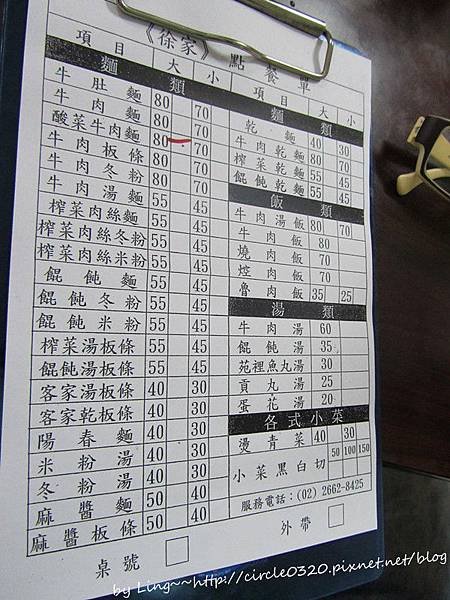 《徐家》 點餐單
項目 大 小
麵類
牛肚麵 80 70
牛肉麵 80 70
酸菜牛肉麵 80 70
牛肉板條 80 70
牛肉冬粉 80 70
牛肉湯麵 55 45
榨菜肉絲麵 55 45
榨菜肉絲冬粉 55 45
榨菜肉絲米粉 55 45
餛飩麵 55 45
餛飩冬粉 55 45
餛飩米粉 55 45
榨菜湯板條 55 45
餛飩湯板條 55 45
客家湯板條 40 30
客家乾板條 40 30
陽春麵 40 30
米粉湯 40 30
冬粉湯 40 30
麻醬麵 50 40
麻醬板條 50 40
桌號
項目 大 小
麵類
乾麵 40 30
牛肉乾麵 80 70
榨菜乾麵 55 45
餛飩乾麵 55 45
飯類
牛肉湯飯 80 70
牛肉飯 80
燒肉飯 70
焢肉飯 70
魯肉飯 35 25
湯類
牛肉湯 60
餛飩湯 35
苑裡魚丸湯 30
貢丸湯 25
蛋花湯 20
各式小菜
燙青菜 40 30
小菜黑白切 50 100 150
服務電話：(02) 2662-8425
外帶
by Ling~~http://circle0320.pixnet.net/blog